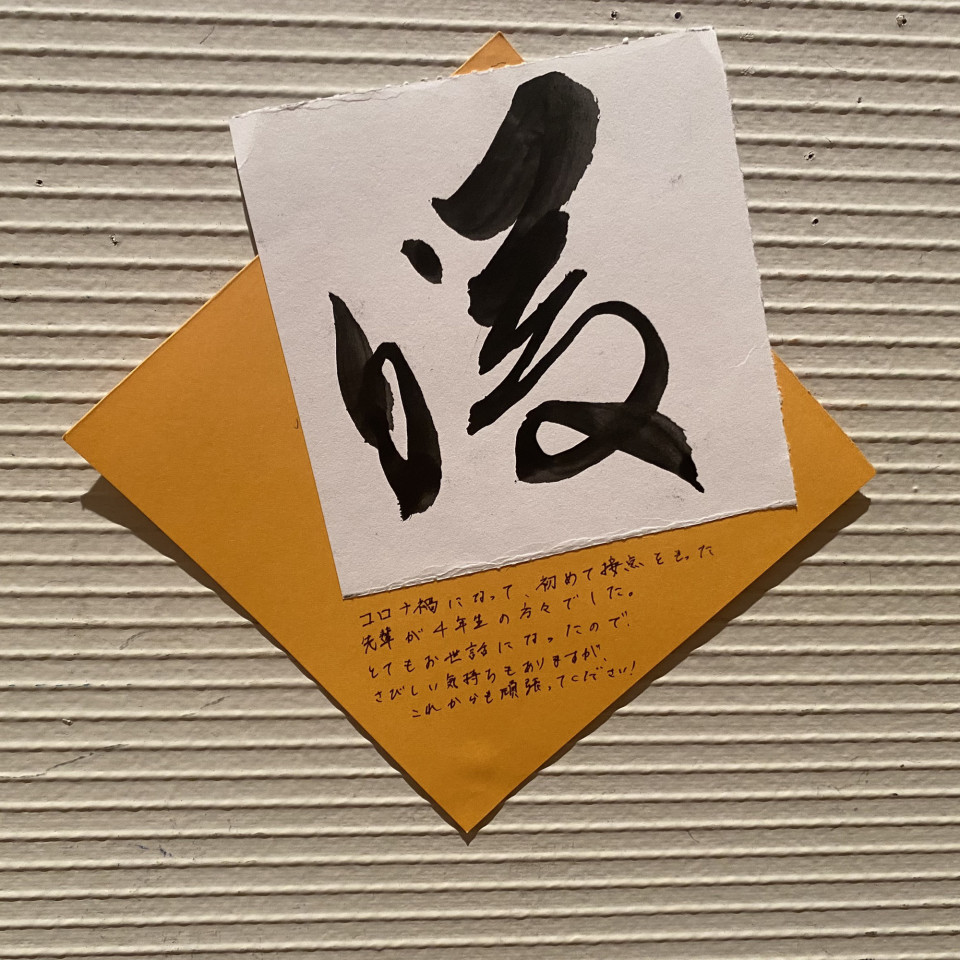 暖
コロナ禍になって、初めて接点をもった
先輩が4年生の方々でした。
とてもお世話になったので、
さびしい気持ちもありますが、
これからも頑張ってください!